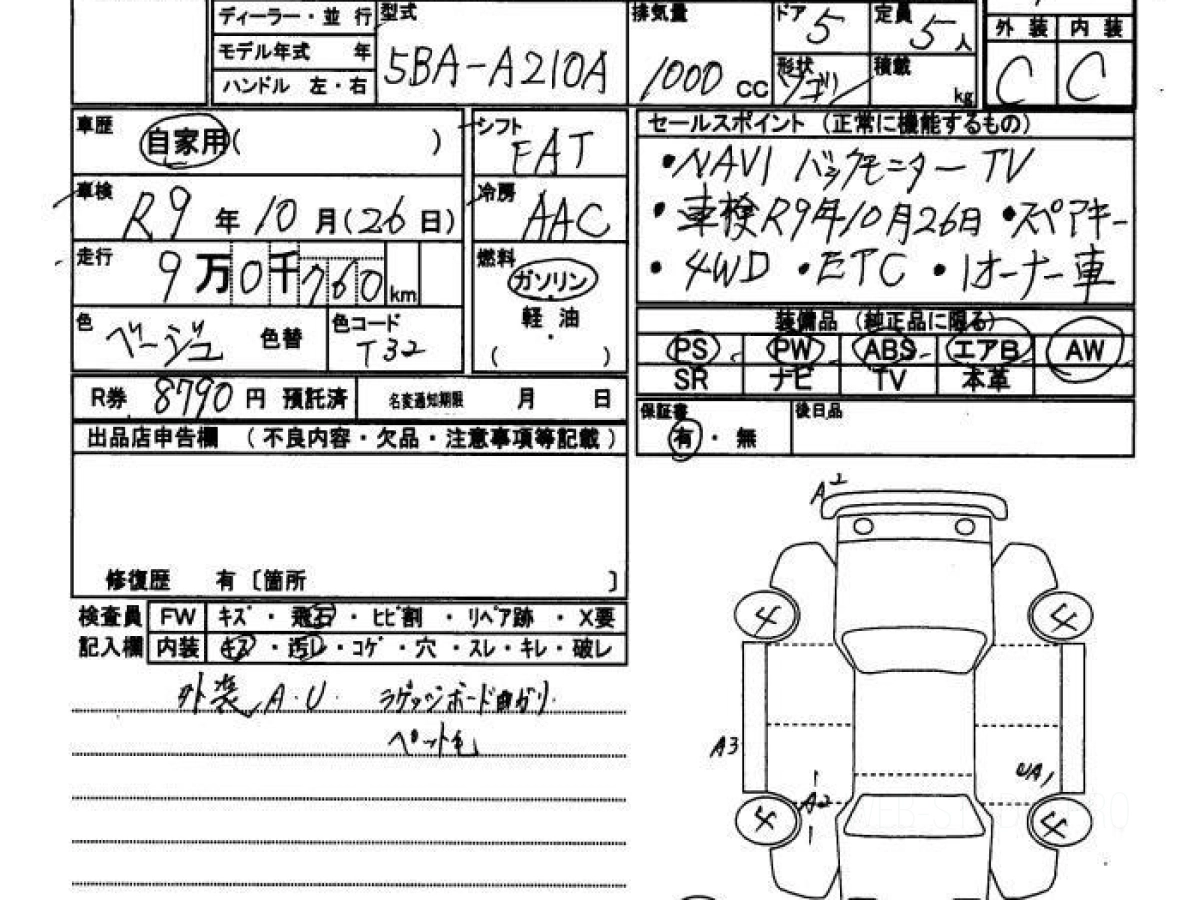 ディーラー・並 行 型式 排気量 ドア 定員
5 5人 外 装 内 装
モデル年式 年 5BA-A210A 1000 cc 形状 ワゴン 積載 kg C C
ハンドル 左・右
車歴 自家用( ) シフト FAT
車検 R9年10月(26日) 冷房 AAC
走行 9万0千760km 燃料 ガソリン
軽 油
( )
色 ベージュ 色替 色コード T32
R券 8790円 預託済 名変通知期限 月 日
出品店申告欄 (不良内容・欠品・注意事項等記載)
修復歴 有〔箇所 〕
検査員 FW キズ・飛石・ヒビ割・リペア跡・X要
記入欄 内装 キズ・汚レ・コゲ・穴・スレ・キレ・破レ
外装 A・U ラゲッジボード曲がり
ペット毛
セールスポイント (正常に機能するもの)
・NAVI バックモニター TV
・車検R9年10月26日 ・スペアキー
・4WD ・ETC ・1オーナー車
装備品 (純正品に限る)
PS PW ABS エアB AW
SR ナビ TV 本革
保証書 後日品
有・無
A2
4 4
A3
UA1
A2
4 4